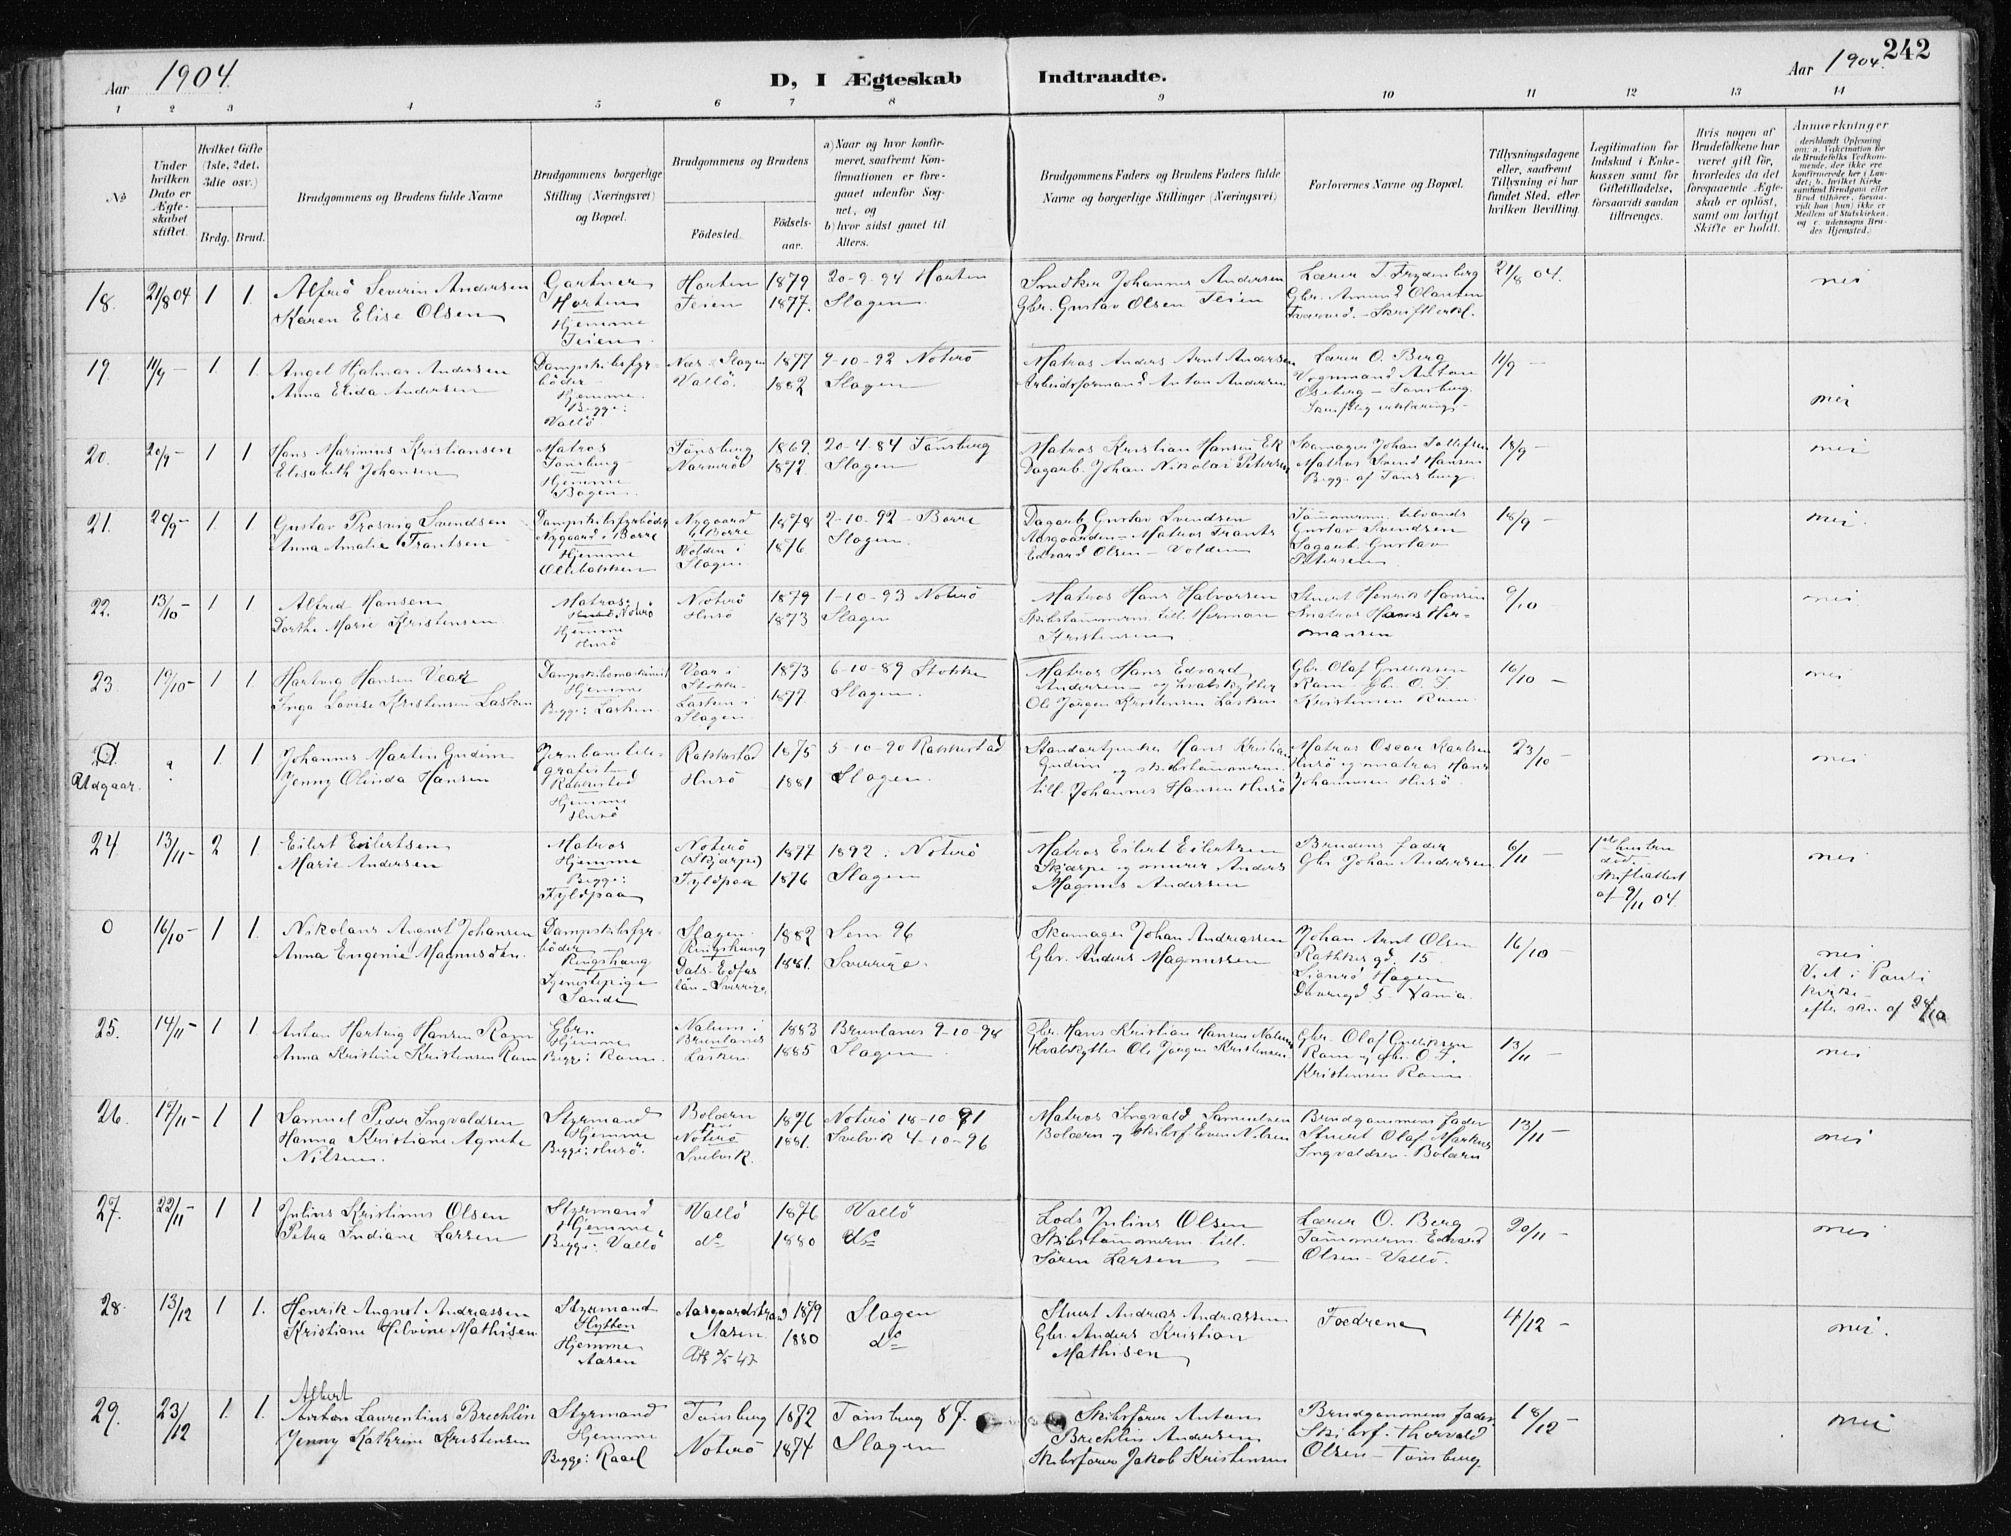 Aar 1904. D, I Ægteskab Indtraadte. Aar 1904. 242
1 2 3 4 5 6 7 8 9 10 11 12 13 14
No
Under hvilken Dato er Ægteskabet stiftet.
Hvilket Gifte (1ste, 2det, 3die osv.)
Brdg. Brud.
Brudgommens og Brudens fulde Navne
Brudgommens borgerlige Stilling (Næringsvei) og Bopæl.
Brudgommens og Brudens
Fødested.
Fødselsaar.
a) Naar og hvor konfirmeret, saafremt Konfirmationen er foregaaet udenfor Sognet, og
b) hvor sidst gaaet til Alters.
Brudgommens Faders og Brudens Faders fulde Navne og borgerlige Stillinger (Næringsvei)
Forlovernes Navne og Bopæl.
Tillysningsdagene eller, saafremt Tillysning ei har fundet Sted, efter hvilken Bevilling.
Legitimation for Indskud i Enkekassen samt for Giftetilladelse, forsaavidt saadan tiltrænges.
Hvis nogen af Brudefolkene har været gift før, hvorledes da det foregaaende Ægteskab er opløst, samt om lovligt Skifte er holdt.
Anmærkninger
18. 21/8 04 1 1.
Alfred Severin Andersen
Karen Elise Olsen
Gartner
Horten
Hjemme
Teien
Horten 1879
Teien 1877.
20-9-94 Horten
Slagen
Snedker Johannes Andersen
Gbr. Gustav Olsen Teien
Lærer T. Frydenberg
Gbr. Amund Olausen
21/8 04.
nei
19 11/9 — 1 1.
Angel Hjalmar Andersen
Anna Elida Andersen
Dampskibsfyrbøder
Hjemme.
Begge:
Vallø
Nær Slagen 1877
Vallø. 1882
9-10-92 Nøterø
Slagen
Matros Anders Arnt Andersen
Arbeidsformand Anton Andersen
Lærer O. Berg
Vognmand Anton
Oseberg — Tønsberg.
11/9 —
nei
20. 20/9 — 1 1
Hans Marinius Kristiansen
Elisabeth Johansen
Matros
Tønsberg
Hjemme
Bogen
Tønsberg 1869.
Narverød 1872.
20-4-84 Tønsberg
Slagen
Matros Kristian Hansen Ek
Dagarb. Johan Nikolai Petersen
Skomager Johan Tollefsen
Matros Svend Hansen
Begge af Tønsberg.
18/9 —
nei
21. 20/9 — 1. 1.
Gustav Prosvig Svendsen
Anna Amalie Frantsen
Dampskibsfyrbøder
Nygaard i Borre
Hjemme
Olsbakken
Nygaard i Borre 1878
Volden i Slagen 1876
2-10-92 — Borre
Slagen.
Dagarb. Gustav Svendsen
Aasgaarden — Matros Frants
Edvard Olsen — Volden
Tømmerm. tilvands
Gustav Svendsen
Dagarb. Gustav
Petersen
18/9 —
nei.
22. 13/10 — 1 1
Alfred Hansen
Dorthe Marie Kristensen
Matros.
Nøterø
Hjemme
Husø
Nøterø 1879
Husø 1873
1-10-93 Nøterø
Slagen
Matros Hans Halvorsen
Skibstømmerm. till. Herman
Kristensen
Stuert Henrik Hansen
Matros Hans Hermansen
9/10 —
nei
23. 19/10 — 1 1.
Hartvig Hansen Vear
Inga Lovise Kristensen Lasken
Dampskibsmaskinist
Hjemme
Begge: Lasken.
Vear i Stokke 1873
Lasken i Slagen 1877.
6-10-89 Stokke
Slagen.
Matros Hans Edvard
Andersen — og hvalskytter
Ole Jørgen Kristensen Lasken
Gbr. Olaf Gulliksen
Ram — gbr. O. J.
Kristensen Ram
16/10 —
nei
Udgaar. 1. 1
Johannes Martin Gudim
Jenny Olinda Hansen
Jernbanetelegrafist
Rakkestad
Hjemme
Husø
Rakkestad 1875
Husø 1881
5-10-90 Rakkestad
Slagen.
Hans Kristian
Gudim og skibstømmerm.
till. Johannes Hansen Husø
Matros Oscar Karlsen
Husø og matros Hans
Johannesen Husø
23/10 —
nei
24. 13/11 — 2 1.
Eilert Eilertsen
Marie Andersen
Matros
Hjemme
Begge:
Fyldpaa
Nøterø (Skjærpe) 1877
Fyldpaa 1876
1892. Nøterø
Slagen
Matros Eilert Eilertsen
Skjærpe og murer Anders
Magnus Andersen
Brudens fader
Gbr Johan Andersen
6/11 —
1ste hustru
død.
Skifteattest
af 9/11 04.
nei
0 16/10 — 1 1.
Nikolaus August Johansen
Anna Eugenie Magnusdtr.
Dampskibsfyrbøder
Ringshaug
Tjenestepige
Sande
Slagen Ringshaug 1882
Dals-Edfus län — Sverrige. 1881.
Sem 96
Sverrige.
Skomager Johan Andreassen
Gbr. Anders Magnussen
Johan Arnt Olsen
Rathkesgd. 15.
Sigurd Hagen
16/10 —
nei.
Viet i Pauli
kirke
25. 14/11 — 1 1.
Anton Hartvig Hansen Ram
Anna Kristine Kristensen Ram
Gbr.
Hjemme
Begge: Ram.
Nalum i Brunlanes 1883
Lasken 1885
Brunlanes 9-10-98
Slagen
Gbr. Hans Kristian Hansen Nalum
Hvalskytter Ole Jørgen Kristensen
Gbr. Olaf Gulliksen
Ram og gbr. O. J.
Kristensen Ram
13/11 —
nei
26. 17/11 — 1 1
Samuel Peder Ingvaldsen
Hanna Kristiane Agnete
Nilsen.
Styrmand
Hjemme
Begge: Husø.
Bolærn Nøterø 1876
Svelvik. 1881.
Nøterø 18-10 91
Svelvik 4-10-96
Matros Ingvald Samuelsen
Bolærn og skibsf Even Nilsen
Brudgommens fader
Stuert Olaf Markus
Ingvaldsen — Bolærn
13/11 —
nei
27. 22/11 — 1 1
Julius Kristinus Olsen
Petra Indiane Larsen
Styrmand
Hjemme
Begge: Vallø
Vallø 1876
do 1880
Vallø
do
Lods Julius Olsen
Skibstømmerm till.
Søren Larsen
Lærer O. Berg
Tømmerm. Edvard
Olsen — Vallø.
20/11 —
nei
28. 13/12 1 1.
Henrik August Andreassen
Kristiane Helvine Mathisen
Styrmand
Hytten
Hjemme
Aasen
Aasgaardstrand 1879
Aasen 1880
Slagen
do
Stuert Andreas Andreassen
Gbr. Anders Kristian
Mathisen
Fædrene
4/12 —
nei.
29. 23/12 1. 1.
Albert
Anton Laurentius Brechlin
Jenny Kathrine Kristensen
Styrmand
Hjemme
Begge: Raael
Tønsberg 1872
Nøterø 1874
Tønsberg 87.
Slagen
Skibsfører Anton
Brechlin Andersen
Skibsfører Jakob Kristensen
Brudgommens fader
Skibsf. Thorvald
Olsen — Tønsberg.
18/12 —
nei